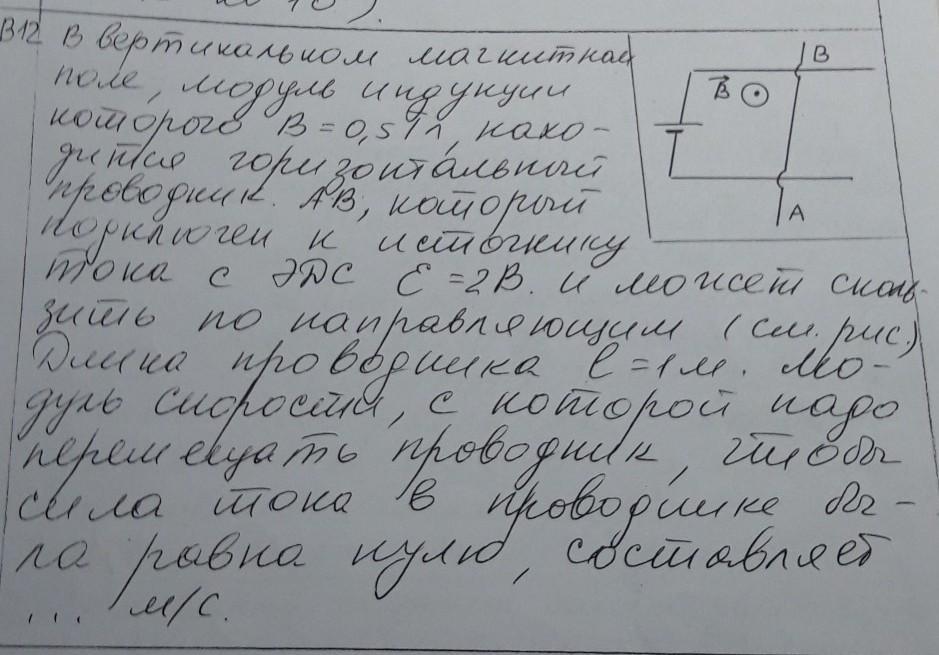 В12 В вертикальном магнитном
поле, модуль индукции
которого B = 0,5 Тл, нахо-
дится горизонтальный
проводник AB, который
подключен к источнику
тока с ЭДС Ɛ = 2В. и может сколь-
зить по направляющим (см. рис.)
Длина проводника l = 1 м. Мо-
дуль скорости, с которой надо
перемещать проводник, чтобы
сила тока в проводнике бы-
ла равна нулю, составляет
... м/с.
B
B⃗
A